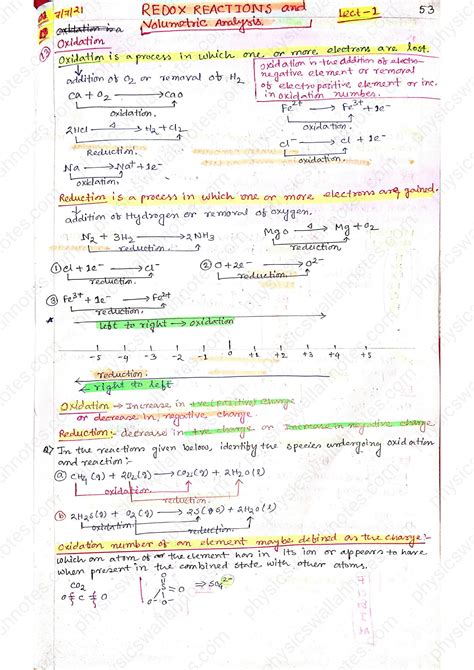 7/7/21
REDOX REACTIONS and
Volumetric Analysis.
Lect-1
53
Oxidation is a
Oxidation
(13) Oxidation is a process in which one or more electrons are lost.
↓
addition of O2 or removal of H2
Ca + O2 → CaO
oxidation.
2HCl →Δ H2 + Cl2
Reduction.
Na → Na+ + 1e-
oxidation.
oxidation in the addition of electro-
negative element or removal
of electropositive element or inc.
in oxidation number.
Fe2+ → Fe3+ + 1e-
oxidation.
Cl- → Cl + 1e-
oxidation.
Reduction is a process in which one or more electrons are gained.
↓
addition of Hydrogen or removal of oxygen.
N2 + 3H2 → 2NH3
reduction.
MgO →Δ Mg + O2
reduction
① Cl + 1e- → Cl-
reduction.
② O + 2e- → O2-
reduction.
③ Fe3+ + 1e- → Fe2+
reduction.
left to right → oxidation
-5 -4 -3 -2 -1 0 +1 +2 +3 +4 +5
reduction.
← right to left
Oxidation → Increase in +ve (positive) charge
or decrease in, negative charge
Reduction:- decrease in +ve charge or Increase in negative charge
Q) In the reactions given below, identify the species undergoing oxidation
and reaction:-
ⓐ CH4(g) + 2O2(g) → CO2(g) + 2H2O(l)
oxidation.
reduction.
ⓑ 2H2S(g) + O2(g) → 2S(s) + 2H2O(l)
oxidation
reduction.
Oxidation number of an element maybe defined as the charge:-
which an atom of the element has in its ion or appears to have
when present in the combined state with other atoms.
CO2
O=C=O
⇒ SO4 2-
physicswalanotes.com